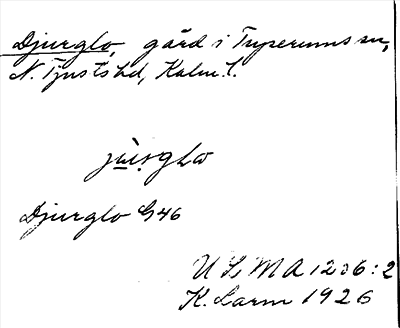 Djurglo, gård i Tryserums sn,
N. Tjusts hd, Kalm. l.
jùrglo
Djurglo G46
ULMA 1206:2
K. Larm 1926